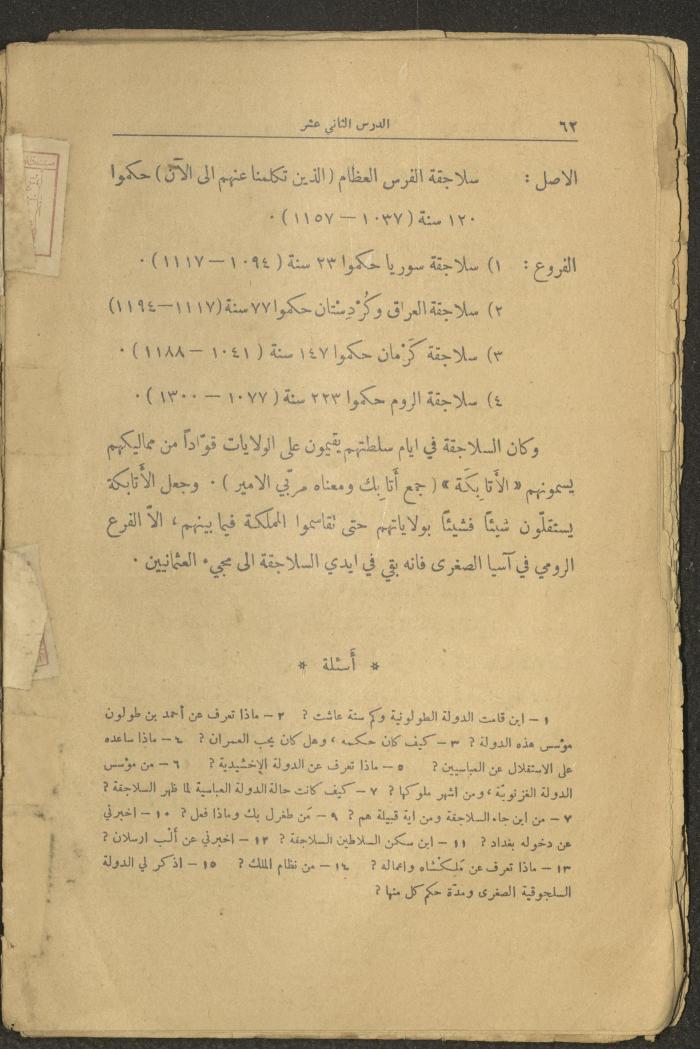 ٦٢ الدرس الثاني عشر
الاصل : سلاجقة الفرس العظام ( الذين تكلمنا عنهم الى الآن ) حكموا
١٢٠ سنة ( ١٠٣٧ — ١١٥٧ ) ٠
الفروع : ١) سلاجقة سوريا حكموا ٢٣ سنة ( ١٠٩٤ — ١١١٧ ) ٠
٢) سلاجقة العراق وكُرْدِسْتان حكموا ٧٧ سنة (١١١٧—١١٩٤)
٣) سلاجقة كَرْمان حكموا ١٤٧ سنة ( ١٠٤١ — ١١٨٨ ) ٠
٤) سلاجقة الروم حكموا ٢٢٣ سنة ( ١٠٧٧ — ١٣٠٠ ) ٠
وكان السلاجقة في ايام سلطتهم يقيمون على الولايات قوّاداً من مماليكهم
يسمونهم « الأَتابِكَة » ( جمع أَتابِك ومعناه مربّي الامير ) ٠ وجعل الأَتابكة
يستقلّون شيئاً فشيئاً بولاياتهم حتى تقاسموا المملكة فيما بينهم ، الاّ الفرع
الرومي في آسيا الصغرى فانه بقي في ايدي السلاجقة الى مجيء العثمانيين ٠
* أَسئلة *
١ — اين قامت الدولة الطولونية وكم سنة عاشت ? ٢ — ماذا تعرف عن أحمد بن طولون
مؤسس هذه الدولة ? ٣ — كيف كان حكمه ، وهل كان يحب العمران ? ٤ — ماذا ساعده
على الاستقلال عن العباسيين ? ٥ — ماذا تعرف عن الدولة الإخشيدية ? ٦ — من مؤسس
الدولة الغزنويّة ، ومن اشهر ملوكها ? ٧ — كيف كانت حالة الدولة العباسية لما ظهر السلاجقة ?
٧ — من اين جاء السلاجقة ومن اية قبيلة هم ? ٩ — مَن طغرل بك وماذا فعل ? ١٠ — اخبرني
عن دخوله بغداد ? ١١ — اين سكن السلاطين السلاجقة ? ١٢ — اخبرني عن أَلْب ارسلان ?
١٣ — ماذا تعرف عن مَلِكْشاه واعماله ? ١٤ — من نظام الملك ? ١٥ — اذكر لي الدولة
السلجوقية الصغرى ومدّة حكم كل منها ?